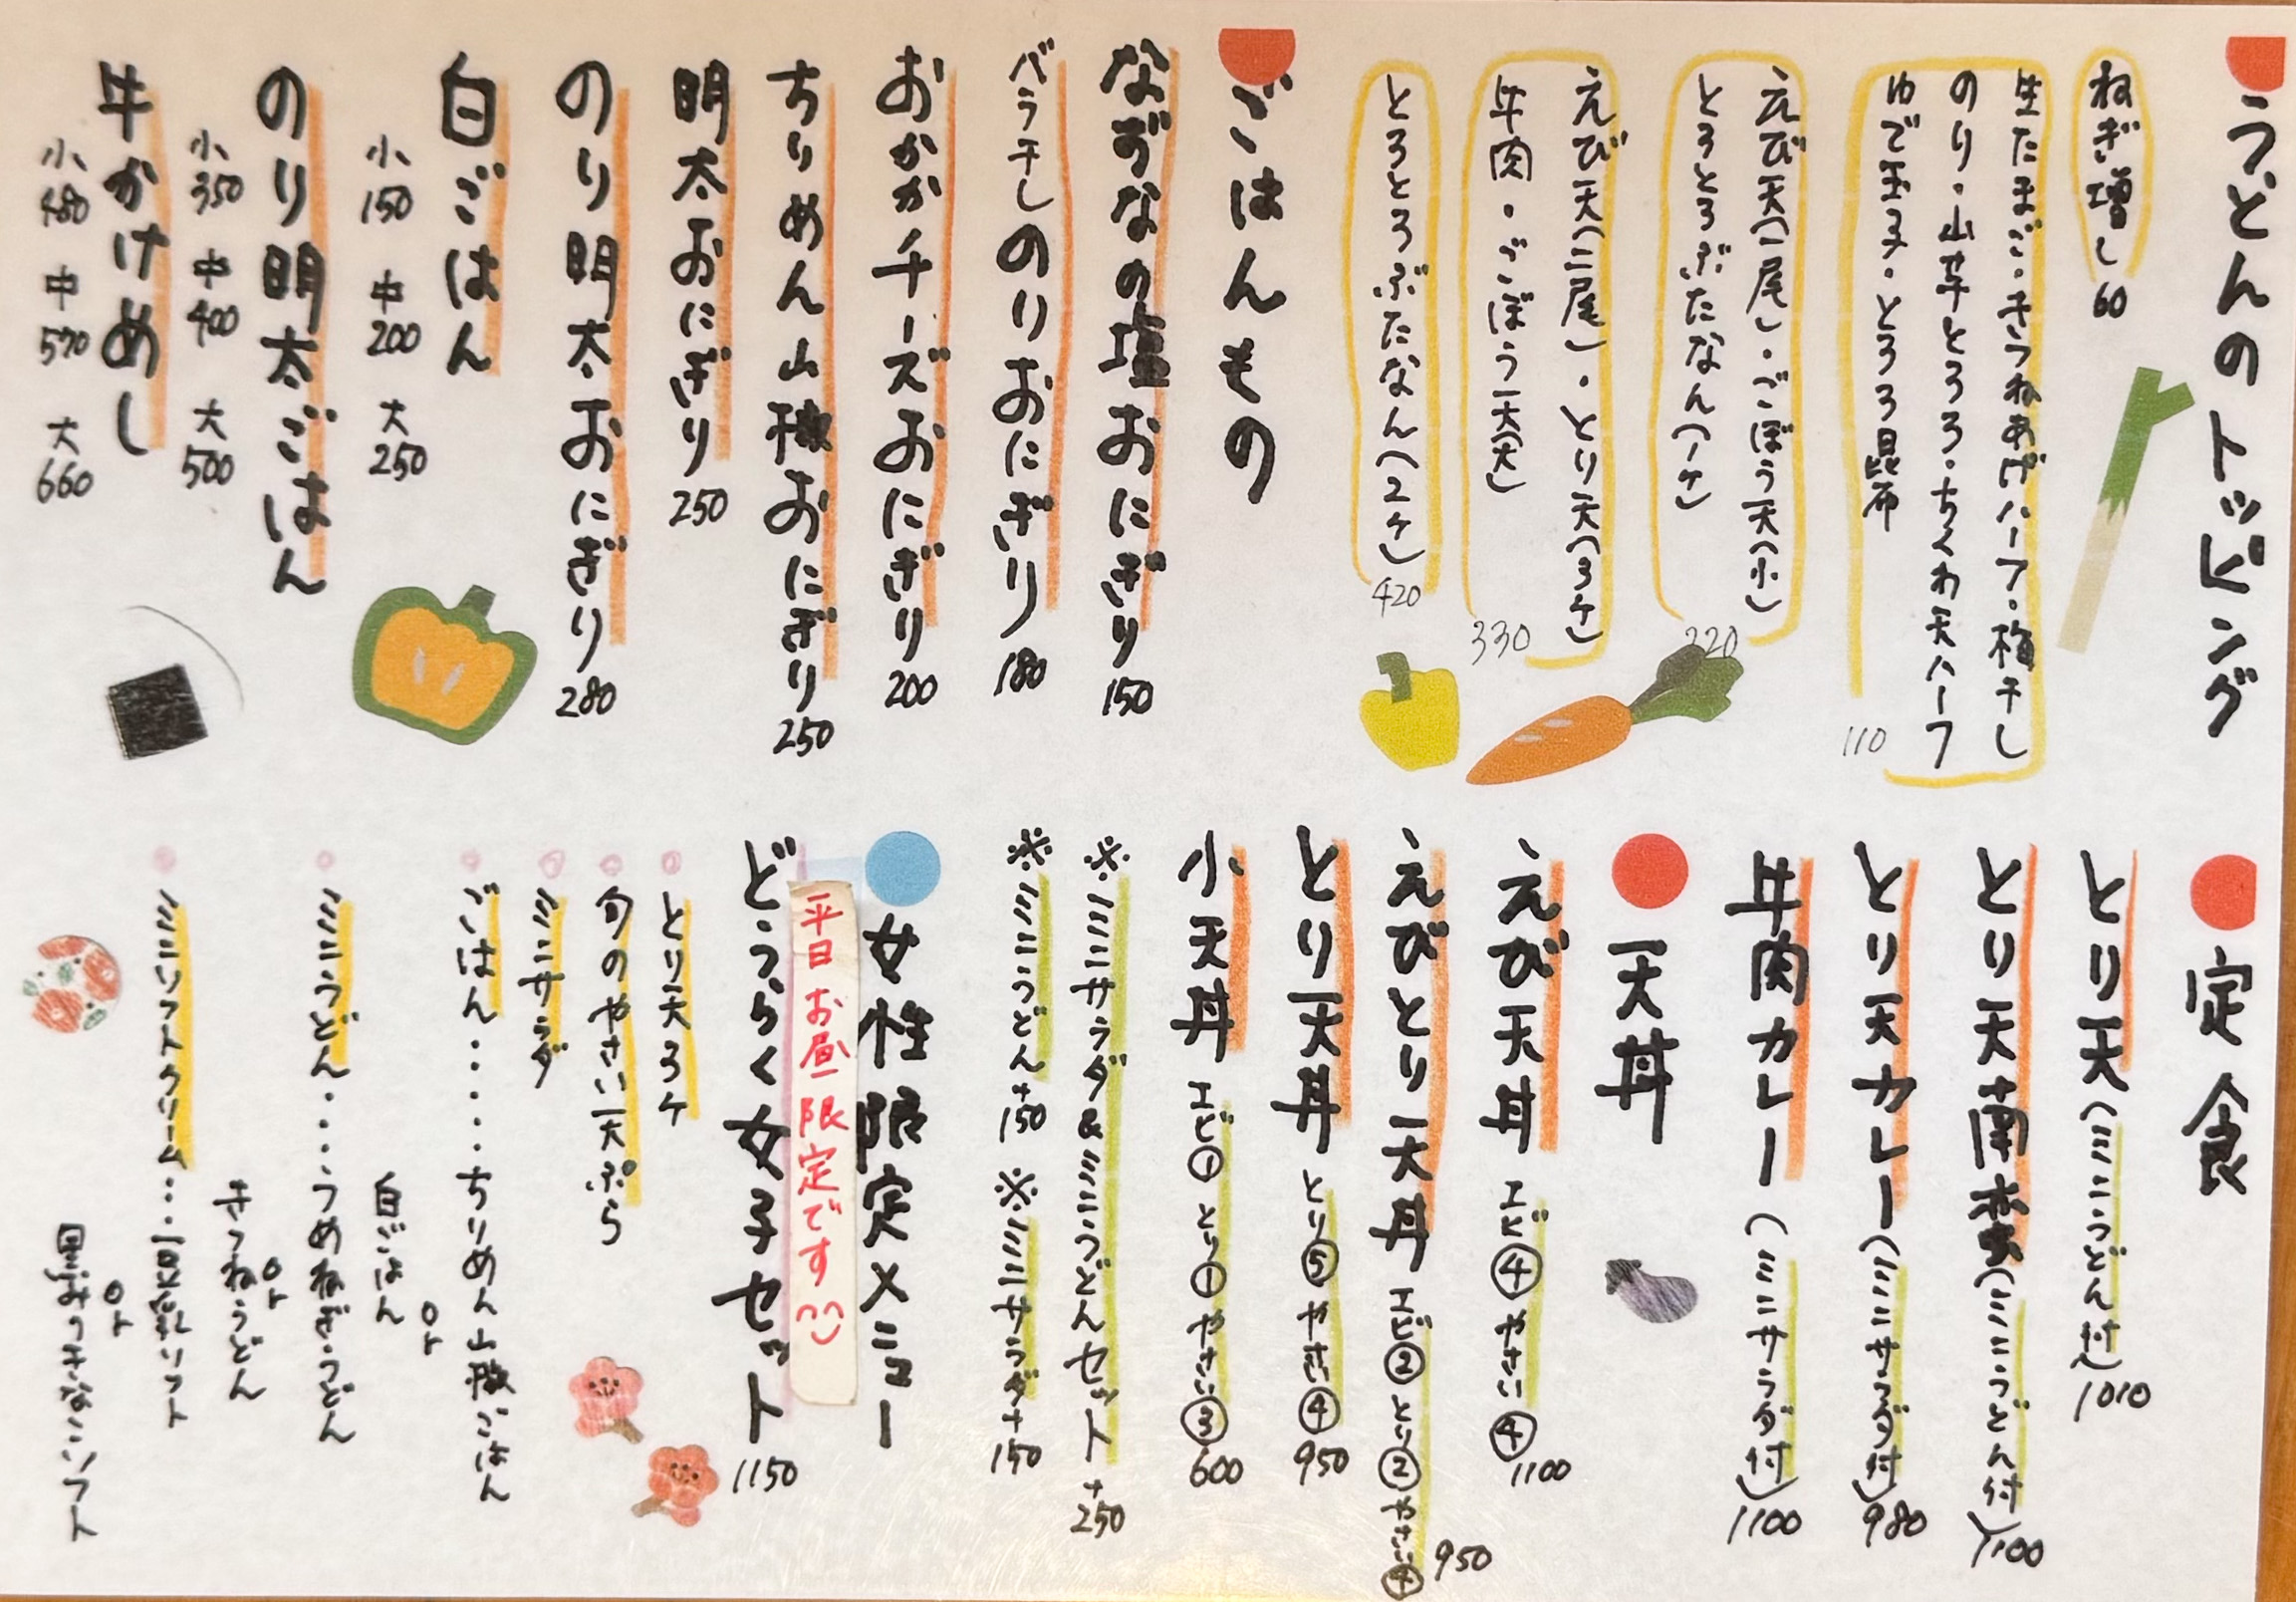 うどんのトッピング
ねぎ増し 60
生たまご・きつねあげハーフ・梅干し
のり・山芋とろろ・ちくわ天ハーフ
ゆで玉子・とろろ昆布
110
えび天(一尾)・ごぼう天(小)
とろとろぶたなん(1ケ)
220
えび天(二尾)・とり天(3ケ)
牛肉・ごぼう天(大)
330
とろとろぶたなん(2ケ)
420
ごはんもの
なずなの塩おにぎり 150
バラ干しのりおにぎり 180
おかかチーズおにぎり 200
ちりめん山椒おにぎり 250
明太おにぎり 250
のり明太おにぎり 280
白ごはん
小150 中200 大250
のり明太ごはん
小350 中400 大500
牛かけめし
小480 中570 大660
定食
とり天(ミニうどん付) 1010
とり天南蛮(ミニうどん付) 1100
とり天カレー(ミニサラダ付) 980
牛肉カレー(ミニサラダ付) 1100
天丼
えび天丼 エビ④ やさい④ 1100
えびとり天丼 エビ② とり② やさい④ 950
とり天丼 とり⑤ やさい④ 950
小天丼 エビ① とり① やさい③ 600
※ミニサラダ&ミニうどんセット +250
※ミニうどん+150 ※ミニサラダ+150
女性限定メニュー
平日お昼限定です
どうらく女子セット 1150
とり天3ケ
旬のやさい天ぷら
ミニサラダ
ごはん・・・・・ちりめん山椒ごはん
or
白ごはん
ミニうどん・・・・うめねぎうどん
or
きつねうどん
ミニソフトクリーム・・・・一黒豆乳ソフト
or
黒みつきなこソフト